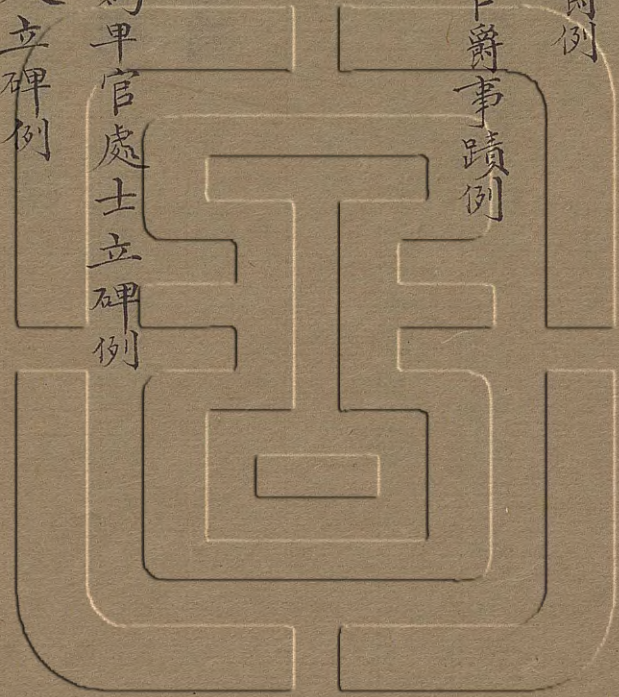 例
爵事蹟例
卑官處士立碑例
立碑例